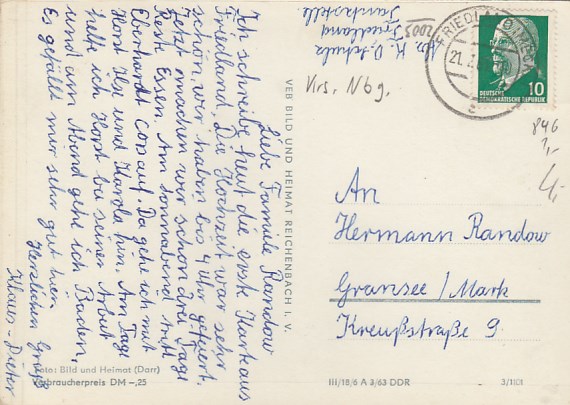 Liebe Familie Randow
Ich schreibe heut die erste Karte aus
Friedland. Die Hochzeit war sehr
schön, wir haben bis 4 Uhr gefeiert.
Jetzt machen wir schon drei Tage
Rest Essen. Am Sonnabend tritt
Eberhardt darauf. Da gehe ich mit
Horst Ilse und Harola hin. Am Tage
helfe ich Horst bei seiner Arbeit
und am Abend gehe ich Baden.
Es gefällt mir sehr gut hier
Herzlichen Grüße
Klaus-Dieter
Foto: Bild und Heimat (Darr)
Verbraucherpreis DM -,25
VEB BILD UND HEIMAT REICHENBACH I. V.
Ab. K. D. Schulz
2005 Friedland
Funkstelle
Krs. Nbg.
FRIEDLAND (MECKL)
21.
10
DEUTSCHE
DEMOKRATISCHE REPUBLIK
846
1,-
4,-
An
Hermann Randow
Gransee/Mark
Kreußstraße 9
III/18/6 A 3/63 DDR
3/1101